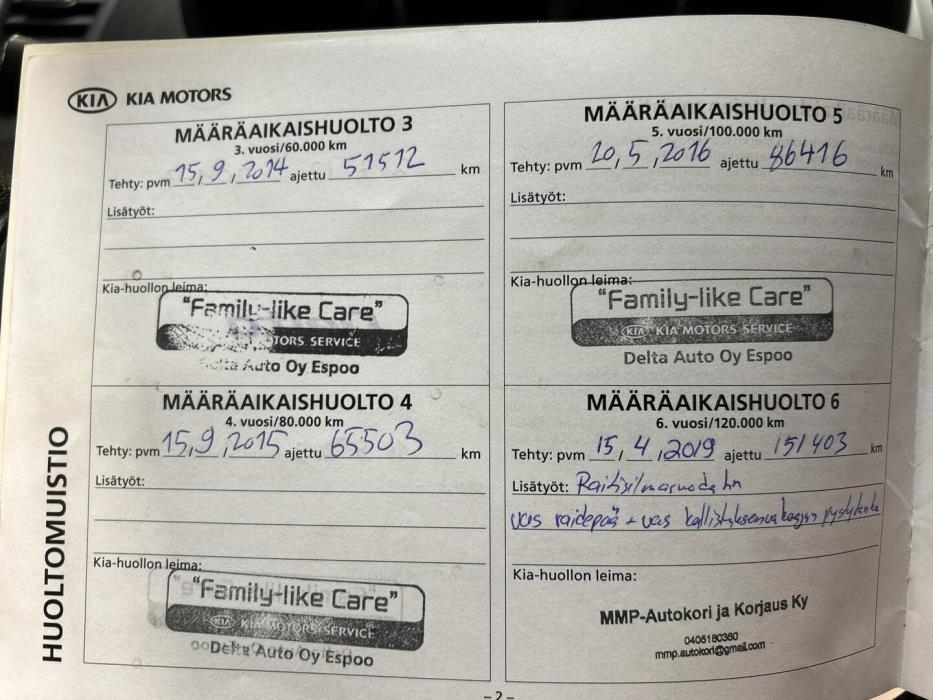 KIA KIA MOTORS
MÄÄRÄAIKAISHUOLTO 3
3. vuosi/60.000 km
Tehty: pvm 15,9,2014 ajettu 51512 km
Lisätyöt:
Kia-huollon leima:
“Family-like Care”
TORS SERVICE
Auto Oy Espoo
MÄÄRÄAIKAISHUOLTO 4
4. vuosi/80.000 km
Tehty: pvm 15,9,2015 ajettu 65503 km
Lisätyöt:
Kia-huollon leima:
“Family-like Care”
KIA KIA MOTORS SERVICE
Delta Auto Oy Espoo
MÄÄRÄAIKAISHUOLTO 5
5. vuosi/100.000 km
Tehty: pvm 20,5,2016 ajettu 86416 km
Lisätyöt:
Kia-huollon leima:
“Family-like Care”
KIA KIA MOTORS SERVICE
Delta Auto Oy Espoo
MÄÄRÄAIKAISHUOLTO 6
6. vuosi/120.000 km
Tehty: pvm 15,4,2019 ajettu 151403 km
Lisätyöt:
vas raidepää + vas
Kia-huollon leima:
MMP-Autokori ja Korjaus Ky
0405180360
mmp.autokori@gmail.com
HUOLTOMUISTIO
-2-